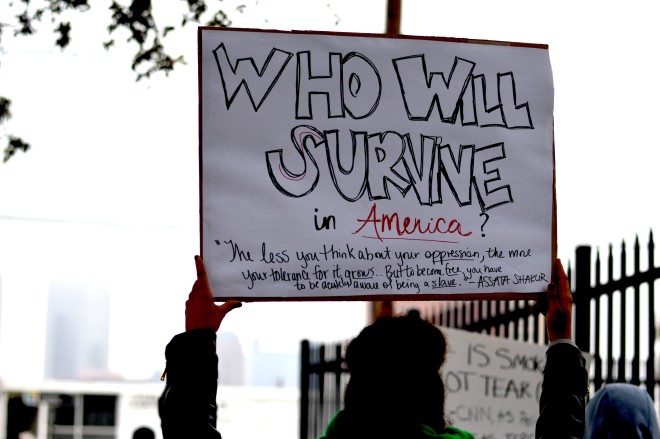 WHO WILL
SURVIVE
in America?
"The less you think about your oppression, the more
your tolerance for it grows... But to become free, you have
to be acutely aware of being a slave." - ASSATA SHAKUR
IS SMOK
OT TEAR
-CNN, AS